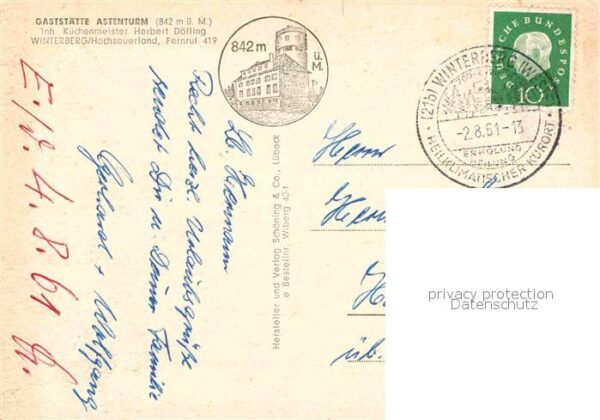 GASTSTÄTTE ASTENTURM (842 m ü. M.)
Inh. Küchenmeister Herbert Dölling
WINTERBERG/Hochsauerland, Fernruf 419
842 m ü. M.
DEUTSCHE BUNDESPOST
10
(21b) WINTERBERG (WESTF
-2.8.61-13
ERHOLUNG
HEILUNG
HEILKLIMATISCHER KURORT
Lb Hermann
Recht herzl. Urlaubsgrüße
sendet Dir u Deiner Familie
Gerhard + Wolfgang
E./d. 4. 8. 61
Hersteller und Verlag Schöning & Co., Lübeck
Bestellnr. Wiberg 40 f
Herrn
üb.
privacy protection
Datenschutz